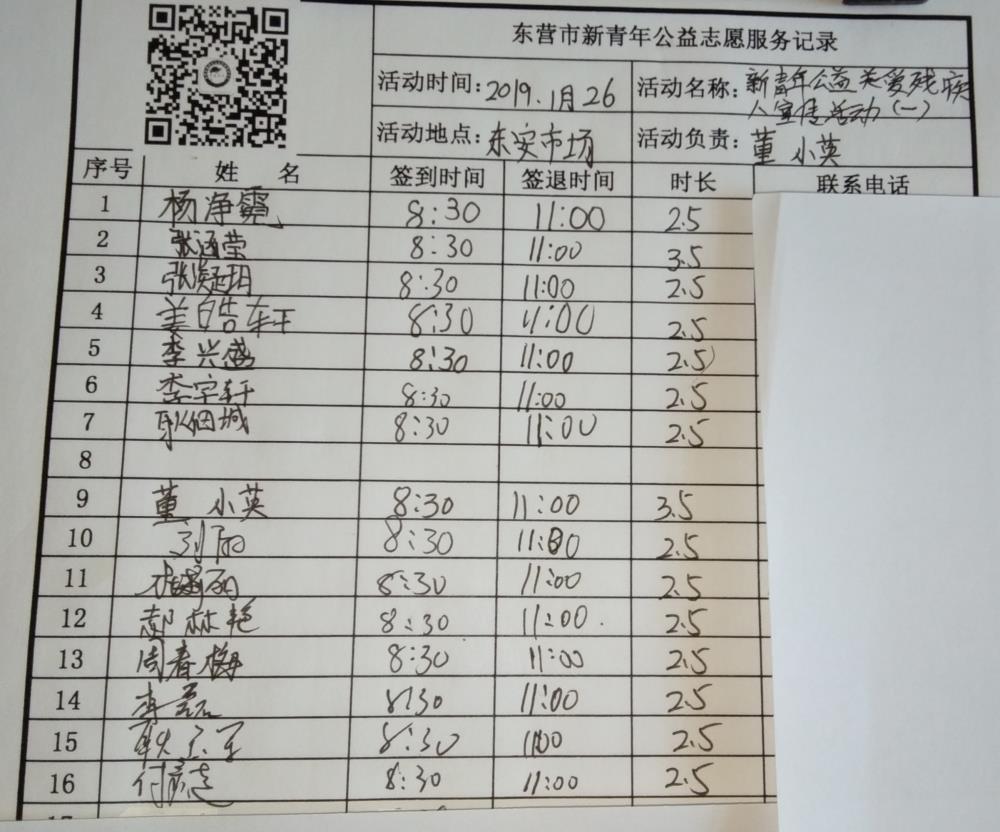 东营市新青年公益志愿服务记录
活动时间: 2019.1月26 活动名称: 新青年公益关爱残疾
人宣传活动(一)
活动地点: 东安市场 活动负责: 董小英
序号 姓 名 签到时间 签退时间 时长 联系电话
1 杨净霓 8:30 11:00 2.5
2 张涵莹 8:30 11:00 3.5
3 张凝玥 8:30 11:00 2.5
4 姜皓轩 8:30 11:00 2.5
5 李兴盛 8:30 11:00 2.5
6 李宇轩 8:30 11:00 2.5
7 8:30 11:00 2.5
8
9 董小英 8:30 11:00 3.5
10 刘丽 8:30 11:00 2.5
11 8:30 11:00 2.5
12 郝林艳 8:30 11:00 2.5
13 周春梅 8:30 11:00 2.5
14 李磊 8:30 11:00 2.5
15 8:30 11:00 2.5
16 8:30 11:00 2.5